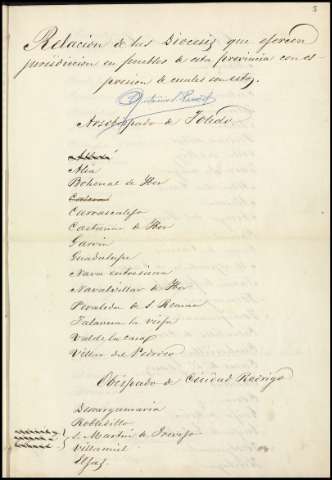 3
Relacion de las Diocesis que ejercen
jurisdiccion en pueblos de esta provincia con es-
presion de cuales son estos.
Arzobispado de Toledo
Alia
Bohonal de Ibor
Carrascalejo
Castañar de Ibor
Garvin
Guadalupe
Nava
Navalvillar de Ibor
Peraleda de S. Roman
Talavera la vieja
Valdelacasa
Villar del Pedroso
Obispado de Ciudad Rodrigo
Descargamaria
Robledillo
S. Martin de Trevejo
Villamiel
Eljas